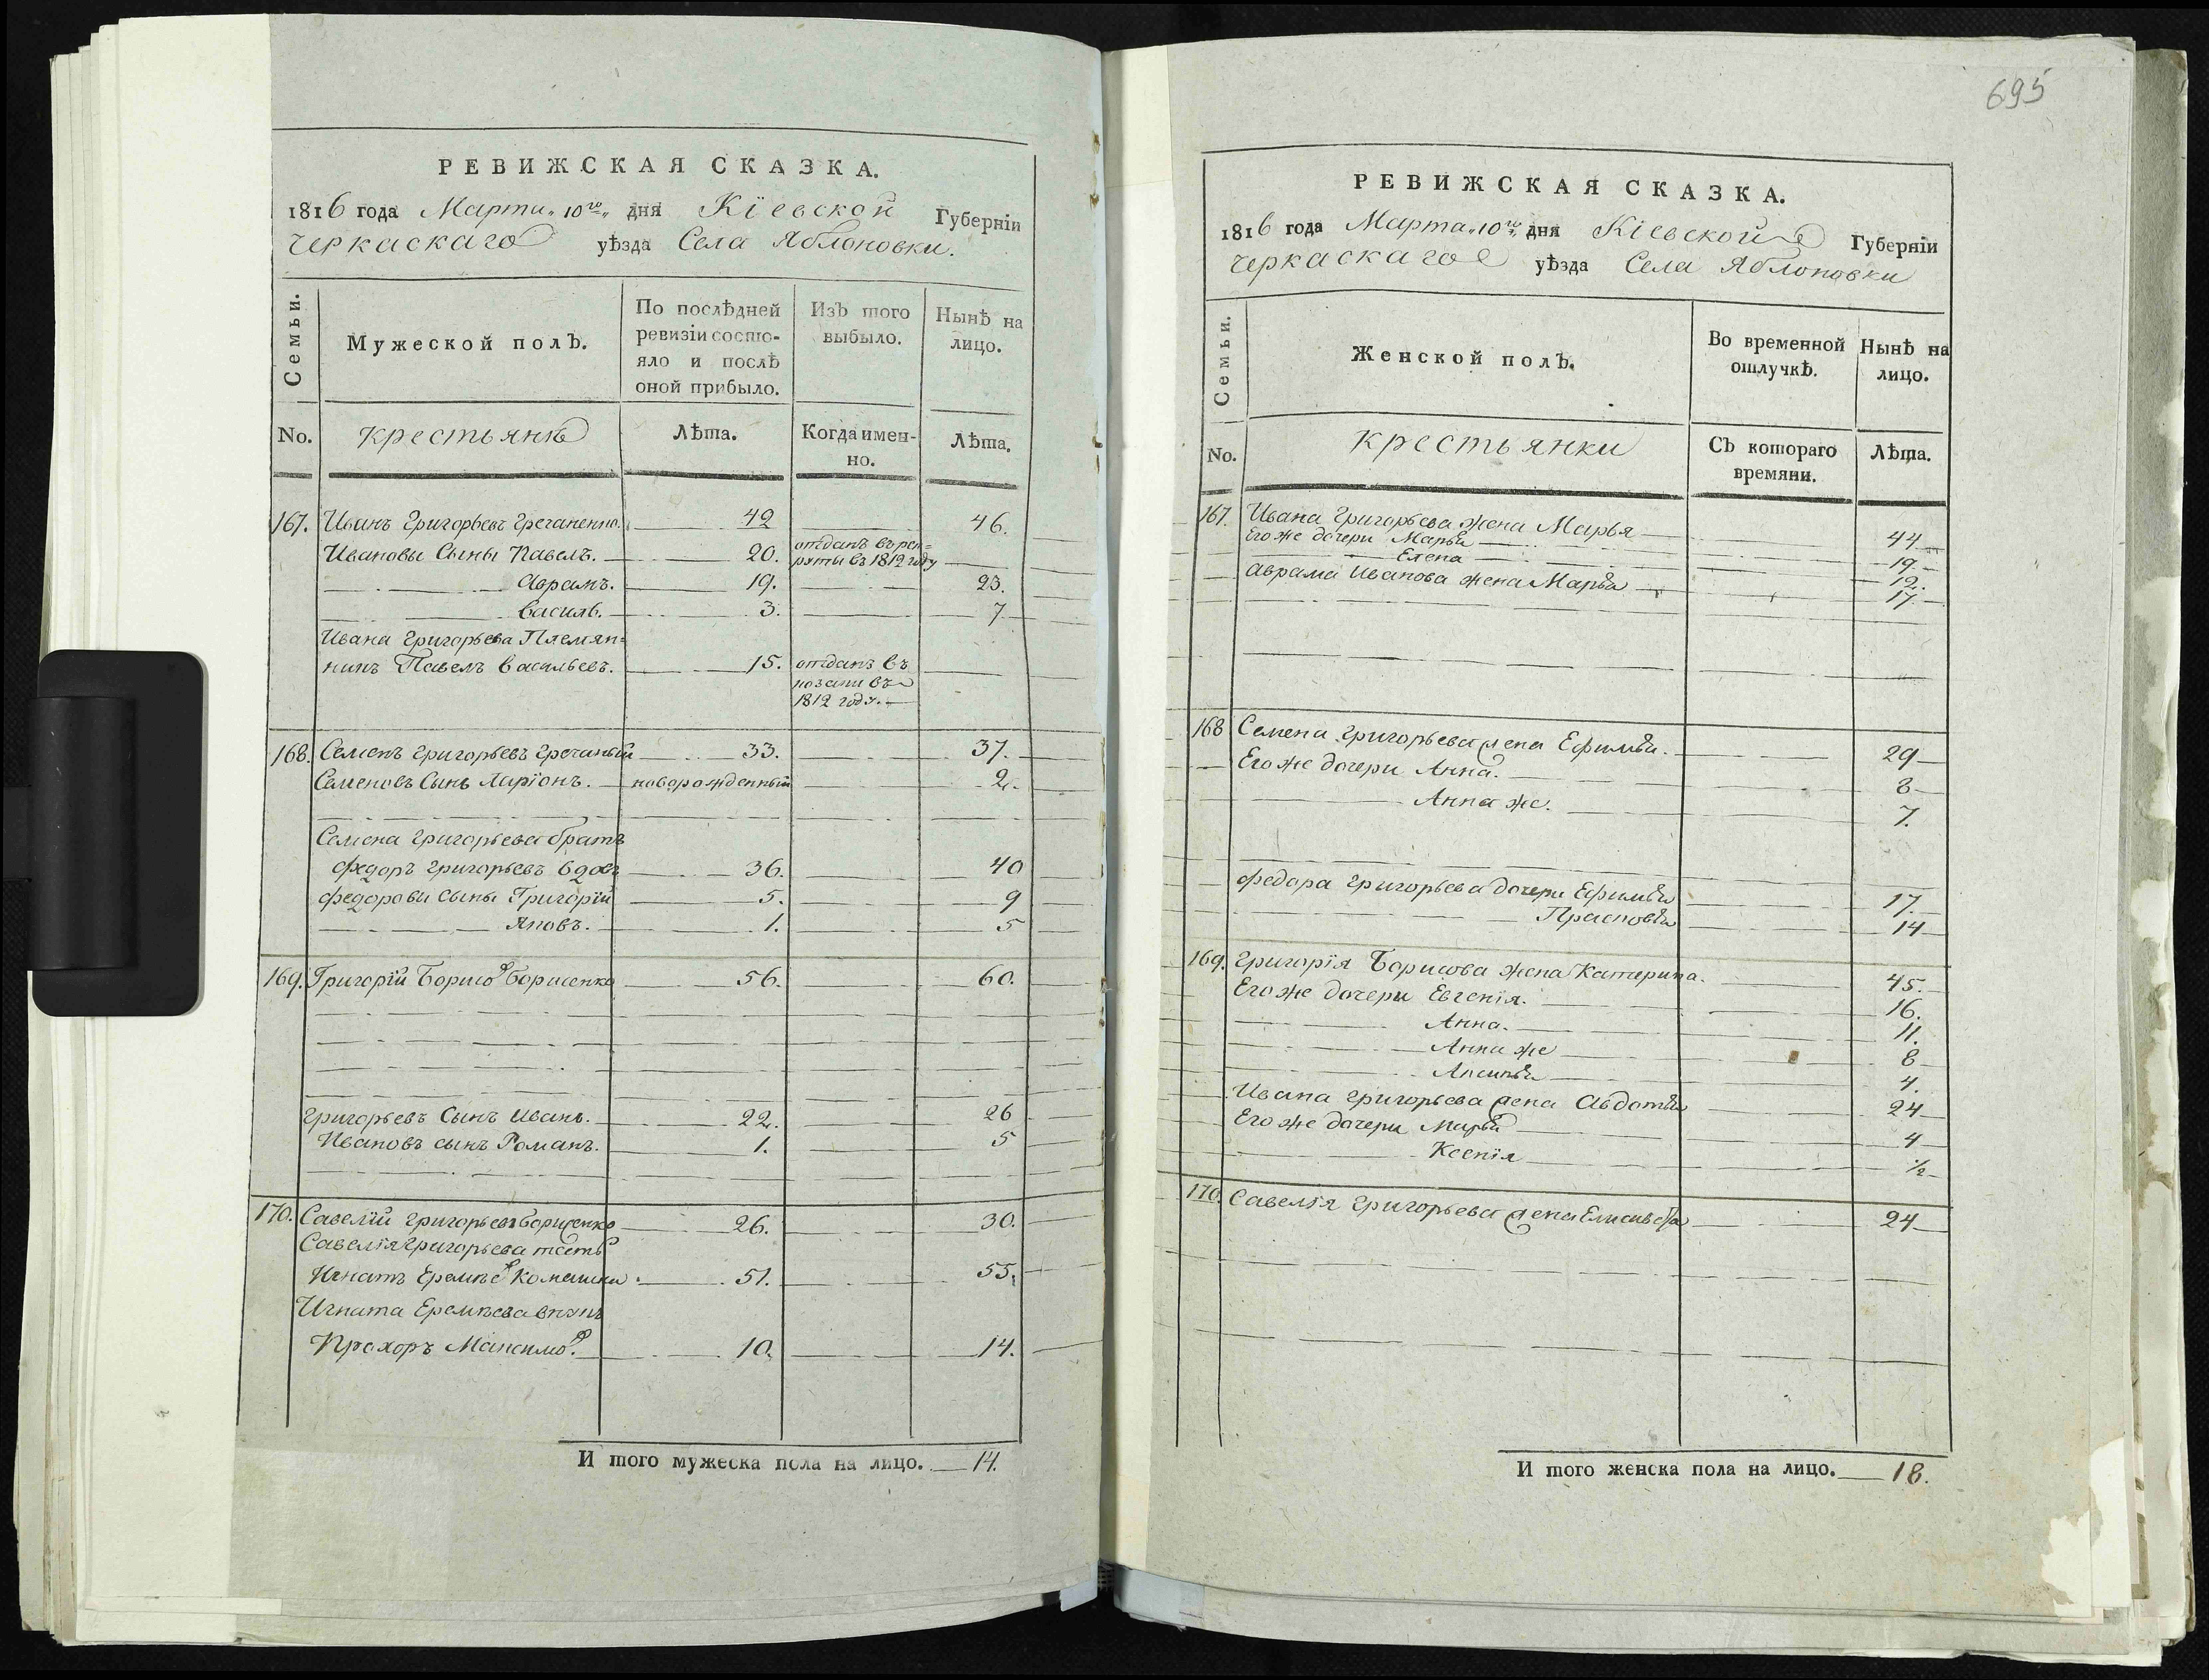 РЕВИЖСКАЯ СКАЗКА.
1816 года Марта „10го„ дня Кіевской Губерніи
Черкаскаго уѣзда Села Яблоновки.
Семьи.
Мужеской полъ.
По послѣдней ревизіи состояло и послѣ оной прибыло.
Изъ того выбыло.
Нынѣ на лицо.
No. крестьяне Лѣта. Когда именно. Лѣта.
167. Иванъ Григорьевъ Гречаненко. 42 46.
Ивановы Сыны Павелъ. 20. отданъ въ рек=
руты въ 1812 году
Аврамъ. 19. 23.
Василь. 3. 7
Ивана Григорьева Племян=
никъ Павелъ Васильевъ. 15. отданъ въ
козаки въ
1812 году.
168. Семенъ Григорьевъ Гречаный 33. 37.
Семеновъ Сынъ Ларіонъ. новорожденный 2.
Семена Григорьева братъ
Федоръ Григорьевъ вдовъ 36. 40
Федоровы сыны Григорій 5. 9
Яковъ. 1. 5
169. Григорій Борисов Борисенко 56. 60.
Григорьевъ Сынъ Иванъ. 22. 26
Ивановъ сынъ Романъ. 1. 5
170. Савелій Григорьевъ Борисенко 26. 30.
Савелія Григорьева тесть
Игнатъ Еремѣев 51. 55.
Игната Еремѣева внукъ
Прохоръ Максимов. 10. 14.
И того мужеска пола на лицо. 14.
695
РЕВИЖСКАЯ СКАЗКА.
1816 года Марта „10го„ дня Кіевской Губерніи
Черкаскаго уѣзда Села Яблоновки
Семьи.
Женской полъ.
Во временной отлучкѣ.
Нынѣ на лицо.
No. крестьянки Съ котораго времяни. Лѣта.
167. Ивана Григорьева жена Марья 44
Его же дочери Марья 19.
Елена 12.
Аврама Иванова жена Марья 17
168 Семена Григорьева жена Ефимья. 29
Его же дочери Анна. 8
Анна же. 7.
Федора Григорьева дочери Ефимья 17.
Прасковья 14
169. Григорія Борисова жена Катерина. 45.
Его же дочери Евгенія. 16.
Анна. 11.
Анна же 8
Аксинья 4.
Ивана Григорьева жена Авдотья 24
Его же дочери Марья 4
Ксенія ½
170. Савелія Григорьева жена Елисавета 24
И того женска пола на лицо. 18.